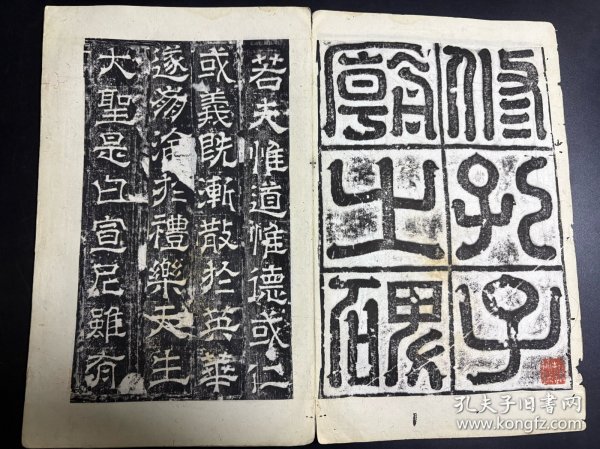 修孔子
廟之碑
若夫惟道惟德或仁
或義既漸散於英華
遂崩淪於禮樂天生
大聖是曰宣尼雖有
孔夫子旧书网
www.kongfz.com